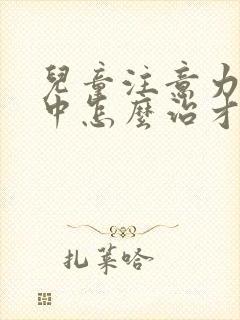 兒童注意力
中怎麼治才
扎萊哈